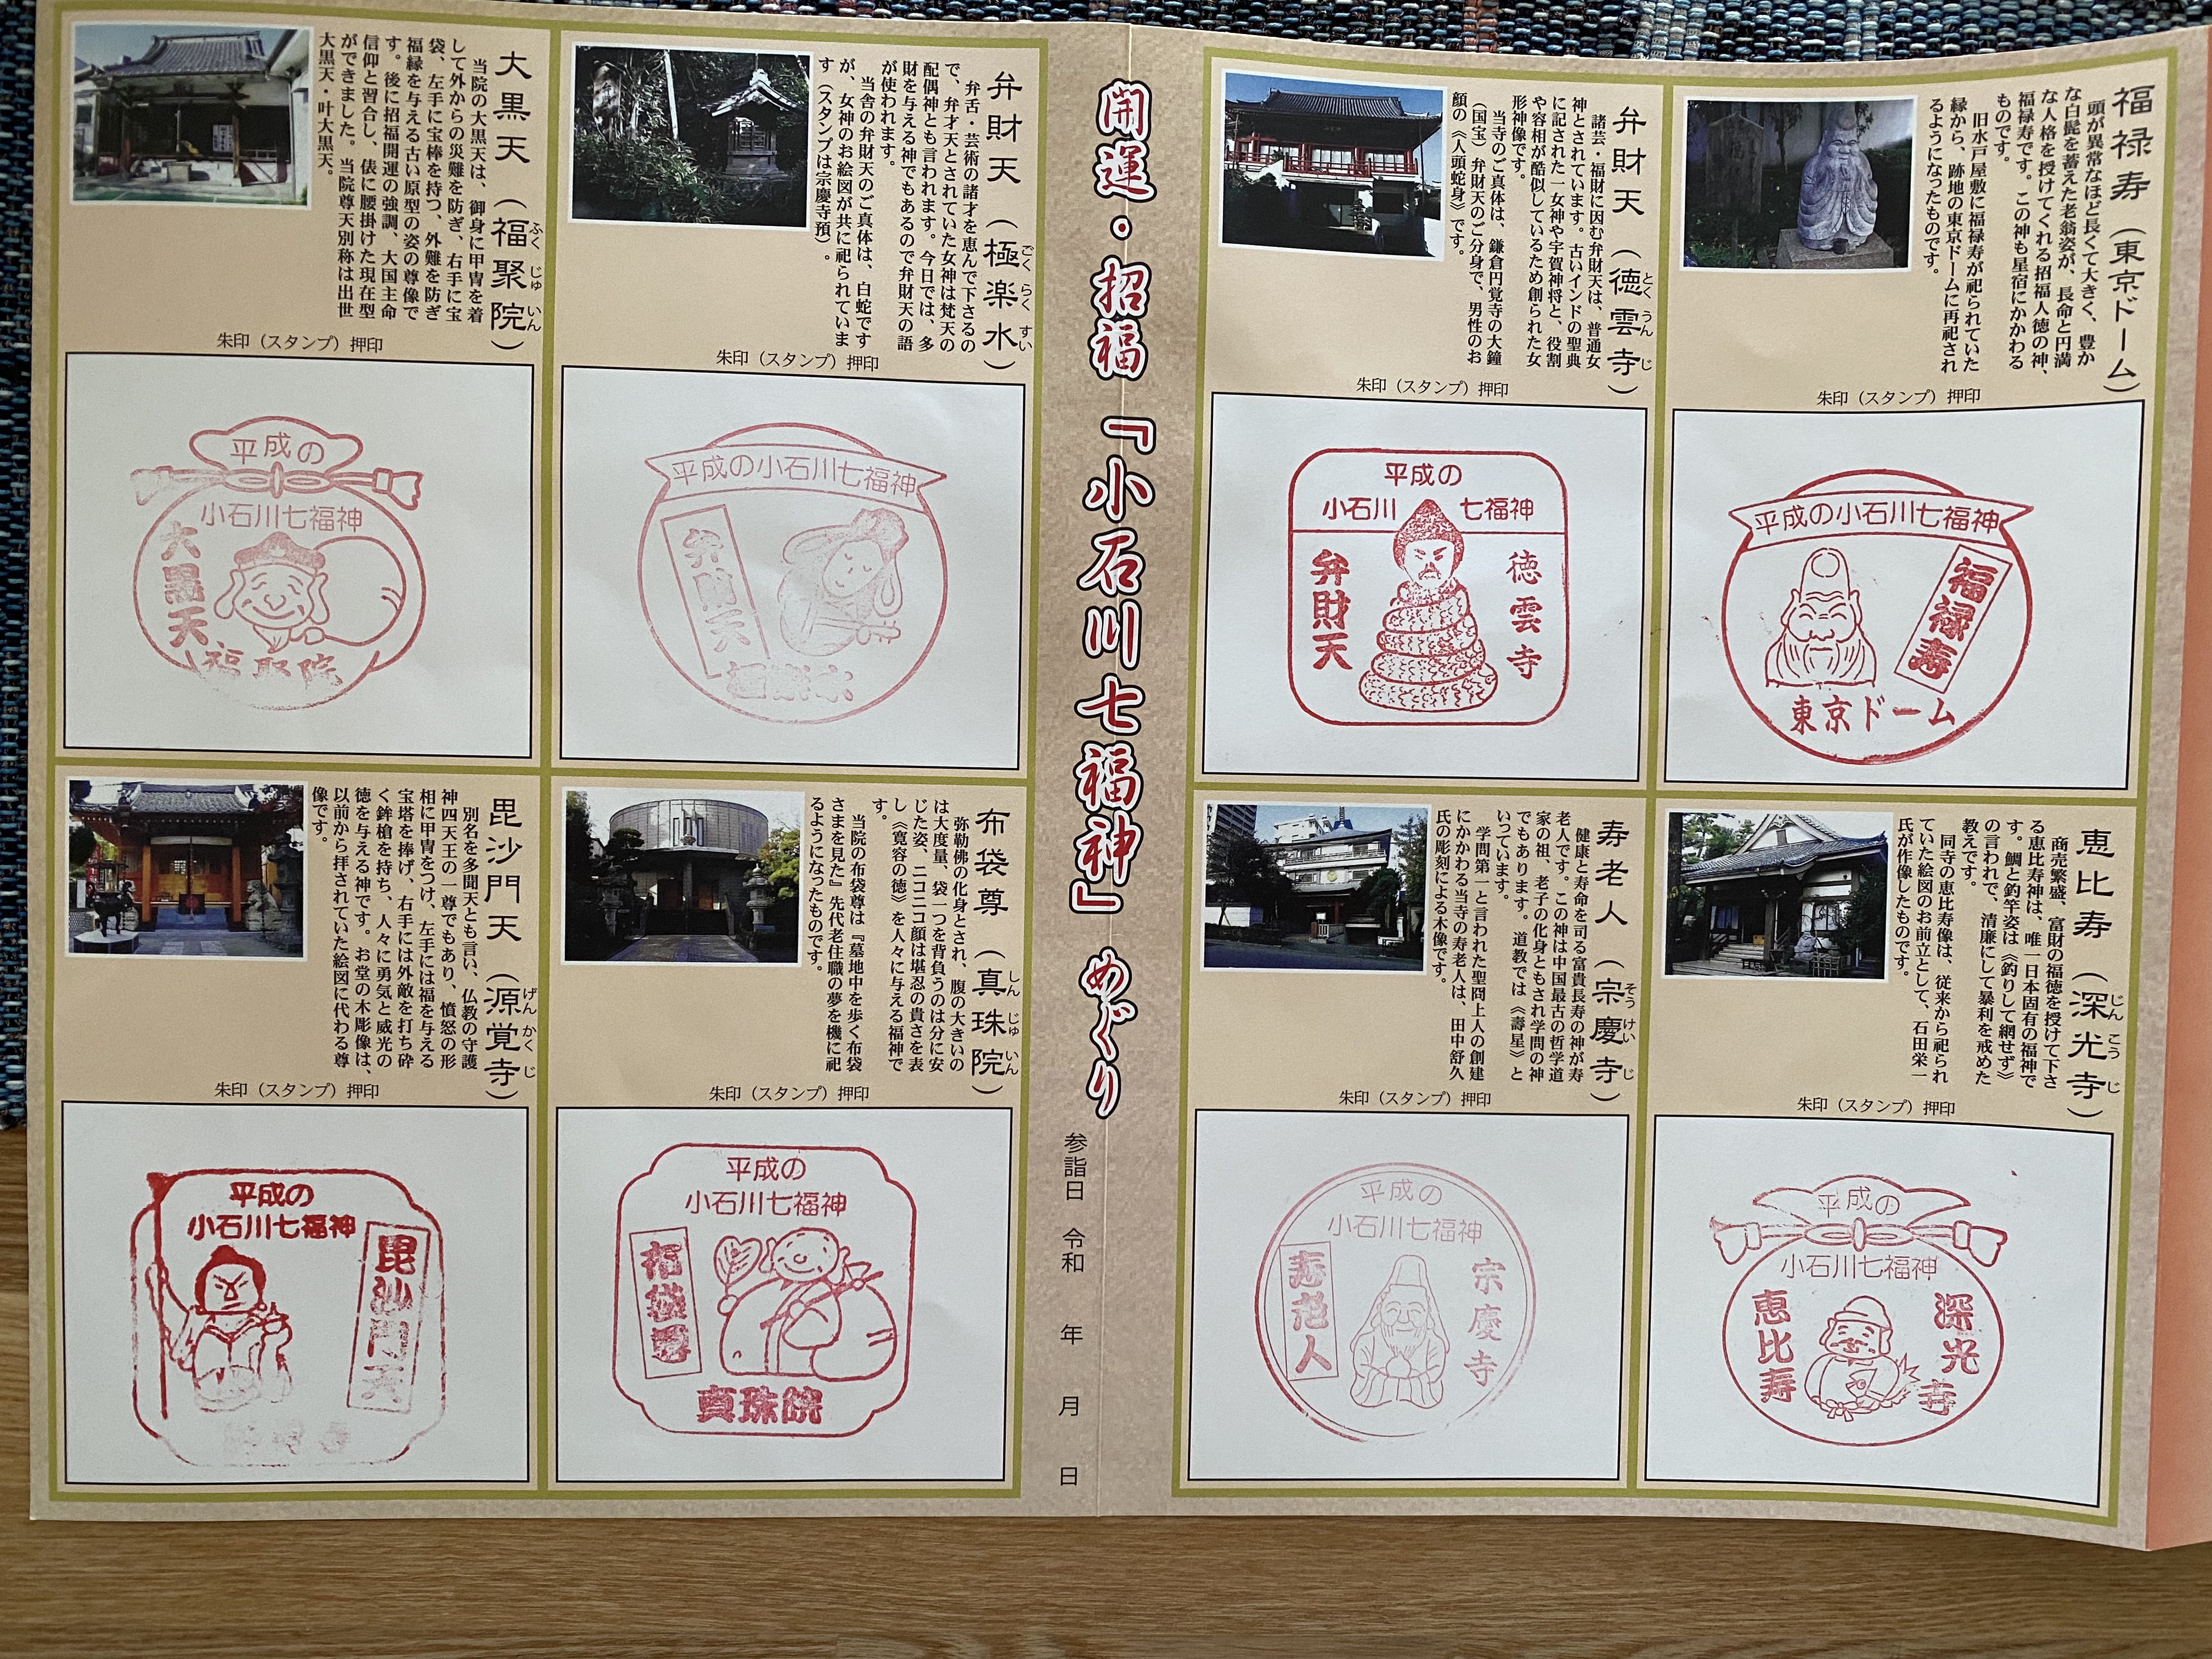 福禄寿（東京ドーム）
頭が異常なほど長くて大きく、豊か
な白髭を蓄えた老翁姿が、長命と円満
な人格を授けてくれる招福人徳の神、
福禄寿です。この神も星宿にかかわる
ものです。
旧水戸屋敷に福禄寿が祀られていた
縁から、跡地の東京ドームに再祀され
るようになったものです。
朱印（スタンプ）押印
平成の小石川七福神
福禄寿
東京ドーム
弁財天（徳雲寺）
とくうんじ
諸芸・福財に因む弁財天は、普通女
神とされています。古いインドの聖典
に記された一女神や宇賀神将と、役割
や容相が酷似しているため創られた女
形神像です。
当寺のご真体は、鎌倉円覚寺の大鐘
（国宝）弁財天のご分身で、男性のお
顔の《人頭蛇身》です。
朱印（スタンプ）押印
平成の
小石川七福神
弁財天
徳雲寺
恵比寿（深光寺）
じんこうじ
商売繁盛、富財の福徳を授けて下さ
る恵比寿神は、唯一日本固有の福神で
す。鯛と釣竿姿は《釣りして網せず》
の言われで、清廉にして暴利を戒めた
教えです。
同寺の恵比寿像は、従来から祀られ
ていた絵図のお前立として、石田栄一
氏が作像したものです。
朱印（スタンプ）押印
平成の
小石川七福神
恵比寿
深光寺
寿老人（宗慶寺）
そうけいじ
健康と寿命を司る富貴長寿の神が寿
老人です。この神は中国最古の哲学道
家の祖、老子の化身ともされ学問の神
でもあります。道教では《壽星》と
いっています。
学問第一と言われた聖冏上人の創建
にかかわる当寺の寿老人は、田中舒久
氏の彫刻による木像です。
朱印（スタンプ）押印
平成の
小石川七福神
寿老人
宗慶寺
開運・招福「小石川七福神」めぐり
参詣日 令和 年 月 日
弁財天（極楽水）
ごくらくすい
弁舌・芸術の諸才を恵んで下さるの
で、弁才天とされていた女神は梵天の
配偶神とも言われます。今日では、多
財を与える神でもあるので弁財天の語
が使われます。
当舎の弁財天のご真体は、白蛇です
が、女神のお絵図が共に祀られていま
す（スタンプは宗慶寺預）。
朱印（スタンプ）押印
平成の小石川七福神
弁財天
極楽水
大黒天（福聚院）
ふくじゅいん
当院の大黒天は、御身に甲冑を着
して外からの災難を防ぎ、右手に宝
袋、左手に宝棒を持つ、外難を防ぎ
福縁を与える古い原型の姿の尊像で
す。後に招福開運の強調、大国主命
信仰と習合し、俵に腰掛けた現在型
ができました。当院尊天別称は出世
大黒天・叶大黒天。
朱印（スタンプ）押印
平成の
小石川七福神
大黒天
福聚院
布袋尊（真珠院）
しんじゅいん
弥勒佛の化身とされ、腹の大きいの
は大度量、袋一つを背負うのは分に安
じた姿、ニコニコ顔は堪忍の貴さを表
し《寛容の徳》を人々に与える福神で
す。
当院の布袋尊は『墓地中を歩く布袋
さまを見た』先代老住職の夢を機に祀
るようになったものです。
朱印（スタンプ）押印
平成の
小石川七福神
布袋尊
真珠院
毘沙門天（源覚寺）
げんかくじ
別名を多聞天とも言い、仏教の守護
神四天王の一尊でもあり、憤怒の形
相に甲冑をつけ、左手には福を与える
宝塔を捧げ、右手には外敵を打ち砕
く鉾槍を持ち、人々に勇気と威光の
徳を与える神です。お堂の木彫像は、
以前から拝されていた絵図に代わる尊
像です。
朱印（スタンプ）押印
平成の
小石川七福神
毘沙門天